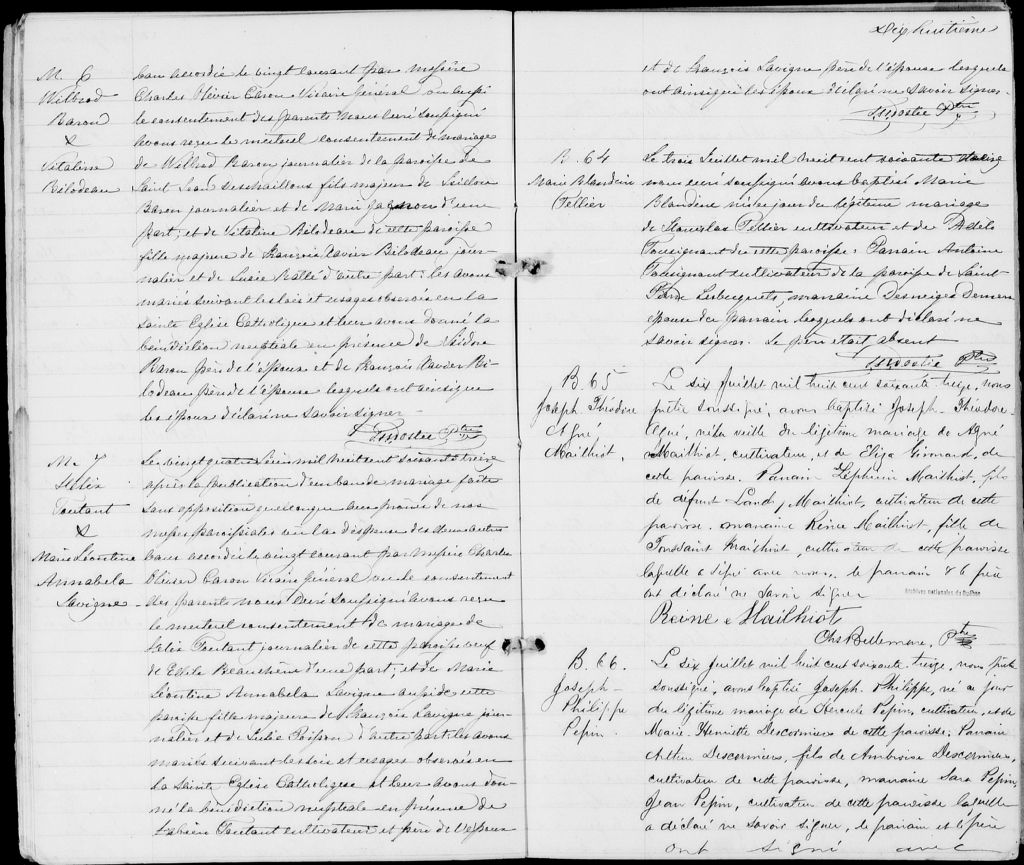 M. 6
Wilbrod
Baron
&
Vitaline
Bilodeau
ban accordée le vingt courant par Messire
Charles Olivier Caron Vicaire Général ou aussi
le consentement des parents Nous Curé soussigné
avons reçu le mutuel consentement de mariage
de Wilbrod Baron journalier de la paroisse de
Saint Jean Deschaillons fils majeur de Isidore
Baron journalier et de Marie Gagnon d'une
part; et de Vitaline Bilodeau de cette paroisse
fille majeure de François Xavier Bilodeau jour-
nalier et de Lucie Vallé d'autre part: les avons
mariés suivant les lois et usages observés en la
Sainte Eglise Catholique et leur avons donné la
bénédiction nuptiale en présence de Isidore
Baron père de l'épouse et de François Xavier Bi-
lodeau père de l'épouse lesquels ont ainsi que
les époux déclaré ne savoir signer
Ptre
M. 7
Félix
Toutant
&
Marie Léontine
Annabela
Lavigne
Le vingt quatre Juin mil huit cent soixante treize
après la publication d'un ban de mariage faite
sans opposition quelconque au prône de nos
messes paroissiales vu la dispense des deux autres
bans accordée le vingt courant par Messire Charles
Olivier Caron Vicaire Général vu le consentement
des parents nous Curé soussigné avons reçu
le mutuel consentement de mariage de
Félix Toutant journalier de cette paroisse veuf
de Beauchêne d'une part; et de Marie
Léontine Annabela Lavigne aussi de cette
paroisse fille majeure de François Lavigne jour-
nalier et de Julie Poisson d'autre part: les avons
mariés suivant les lois et usages observés en
la Sainte Eglise Catholique et leur avons don-
né la bénédiction nuptiale en présence de
Fabien Toutant cultivateur et père de l'époux
Dix huitième
et de François Lavigne père de l'épouse lesquels
ont ainsi que les époux déclaré ne savoir signer.
Ptre
B. 64
Marie Blandine
Pellier
Le trois Juillet mil huit cent soixante treize
nous curé soussigné avons baptisé Marie
Blandine née ce jour du légitime mariage
de Stanislas Pellier cultivateur et de Adèle
Tousignant de cette paroisse: Parrain Antoine
Tousignant cultivateur de la paroisse de Saint
Pierre Lesbecquets, marraine Desneiges Demers
épouse du parrain lesquels ont déclaré ne
savoir signer. Le père était absent
Ptre
B. 65
Joseph Théodore
Agné
Mailhiot.
Le six Juillet mil huit cent soixante treize, nous
prêtre soussigné, avons baptisé Joseph-Théodore-
Agné, né la veille du légitime mariage de Agné
Mailhiot, cultivateur, et de Eliza Girouard, de
cette paroisse. Parrain Zéphirin Mailhiot, fils
de défunt Louis Mailhiot, cultivateur de cette
paroisse, marraine Reine Mailhiot, fille de
Toussaint Mailhiot, cultivateur de cette paroisse
laquelle a signé avec nous, le parrain & le père
ont déclaré ne savoir signer
Archives nationales du Québec
Reine Mailhiot
Chs Bellemare, Ptre
B. 66.
Joseph-
Philippe
Pepin.
Le six Juillet mil huit cent soixante treize, nous prêtre
soussigné, avons baptisé Joseph-Philippe, né ce jour
du légitime mariage de Hercule Pepin, cultivateur, et de
Marie Henriette Descormiers de cette paroisse; Parrain
Arthur Descormiers, fils de Ambroise Descormiers,
cultivateur de cette paroisse, marraine Sara Pepin,
Jean Pepin, cultivateur de cette paroisse laquelle
a déclaré ne savoir signer, le parrain et le père
ont signé avec